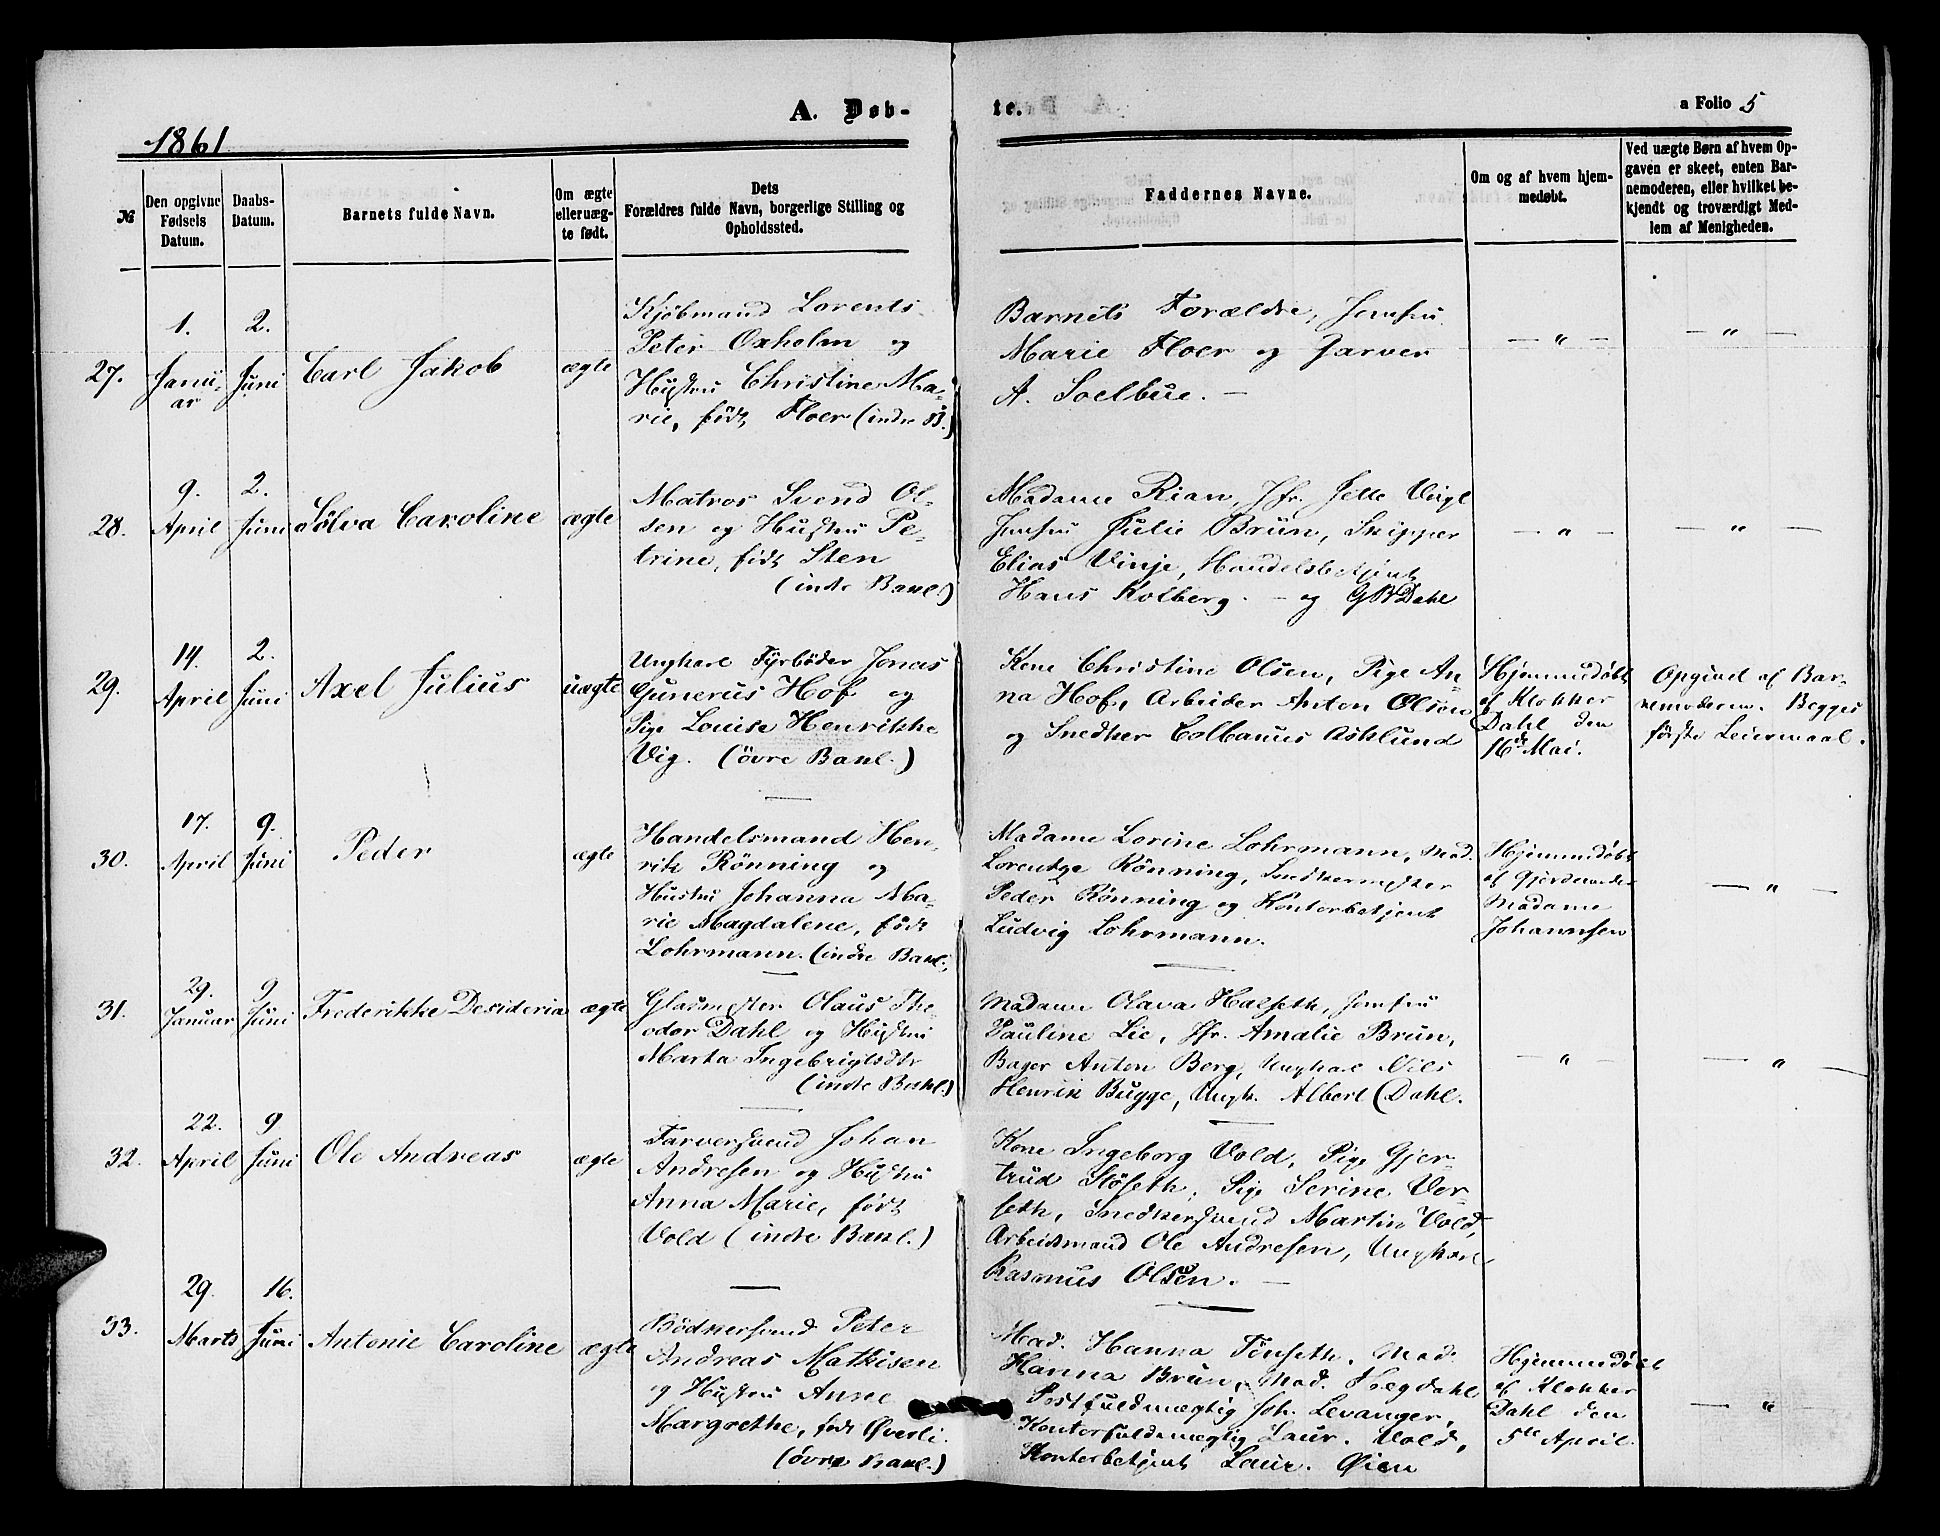 A. Døb-
te.
a Folio 5
1861
№
Den opgivne
Fødsels
Datum.
Daabs-
Datum.
Barnets fulde Navn.
Om ægte
eller uæg-
te født.
Dets
Forældres fulde Navn, borgerlige Stilling og
Opholdssted.
Faddernes Navne.
Om og af hvem hjem-
medøbt.
Ved uægte Børn af hvem Op-
gaven er skeet, enten Bar-
nemoderen, eller hvilket be-
kjendt og troværdigt Med-
lem af Menigheden.
27.
1.
Janu-
ar
2.
Juni
Carl Jakob
ægte
Kjøbmand Lorents
Peter Oxholm og
Hustru Christine Ma-
rie, født Floer (indre B.)
Barnets Forældre, Jomfru
Marie Floer og Farver
A. Soelbue. —
— " —
— " —
28.
9.
April
2.
Juni
Sølva Caroline
ægte
Matros Svend Ol-
sen og Hustru Pe-
trine, født Sten
(indre Bakl.)
Madame Rian, Jfr. Jette
Jomfru Julie Brun, Skipper
Elias Vinje, Handelsbetjent
Hans Kolberg. — og Dahl
— " —
— " —
29.
14.
April
2.
Juni
Axel Julius
uægte
Ungkarl Fyrbøder Jonas
Gunerus Hof og
Pige Louise Henrikke
Vig. (øvre Bakl.)
Kone Christine Olsen, Pige An-
na Hof, Arbeider Anton Olson
og Snedker Colbanus Asklund
Hjemmedøbt
af Klokker
Dahl den
16de Mai.
Opgivad af Bar-
nemoderen. Begges
første Leiermaal.
30.
17.
April
9.
Juni
Peder
ægte
Handelsmand Hen-
rik Rønning og
Hustru Johanna Ma-
rie Magdalene, født
Lohrmann. (indre Bakl.)
Madame Lorine Lohrmann, Mad.
Lorentze Rønning, Snedkermester
Peder Rønning og Kontorbetjent
Ludvig Lohrmann.
Hjemmedøbt
af Gjordemoder
Madame
Johannsen
— " —
31.
29.
Januar
9
Juni
Frederikke Desideria
ægte
Glasmester Olaus The-
odor Dahl og Hustru
Marta Ingebrigtsdtr
(indre Bakl.)
Madame Olava Halseth, Jomfru
Pauline Lie, Jfr. Amalie Brun,
Bager Anton Berg, Ungkarl Nils
Henrik Bugge, Ungk. Albert Dahl.
— " —
— " —
32.
22.
April
9
Juni
Ole Andreas
ægte
Farversvend Johan
Andresen og Hustru
Anna Marie, født
Vold (indre Bakl.)
Kone Ingeborg Vold, Pige Gjer-
trud Støseth, Pige Serine Ver-
seth, Snedkersvend Martin Vold,
Arbeidsmand Ole Andresen, Ungkarl
Rasmus Olsen. —
33.
29.
Marts
16.
Juni
Antonie Caroline
ægte
Bødkersvend Peter
Andreas Mathisen
og Hustru Anne
Margrethe, født Øverli.
(øvre Bakl.)
Mad. Hanna Tønseth, Mad.
Hanna Brun, Mad. Hegdahl
Postfuldmægtig Joh. Levanger,
Kontorfuldmægtig Laur. Vold,
Kontorbetjent Laur. Øien
Hjemmedøbt
af Klokker
Dahl den
5te April.
— " —